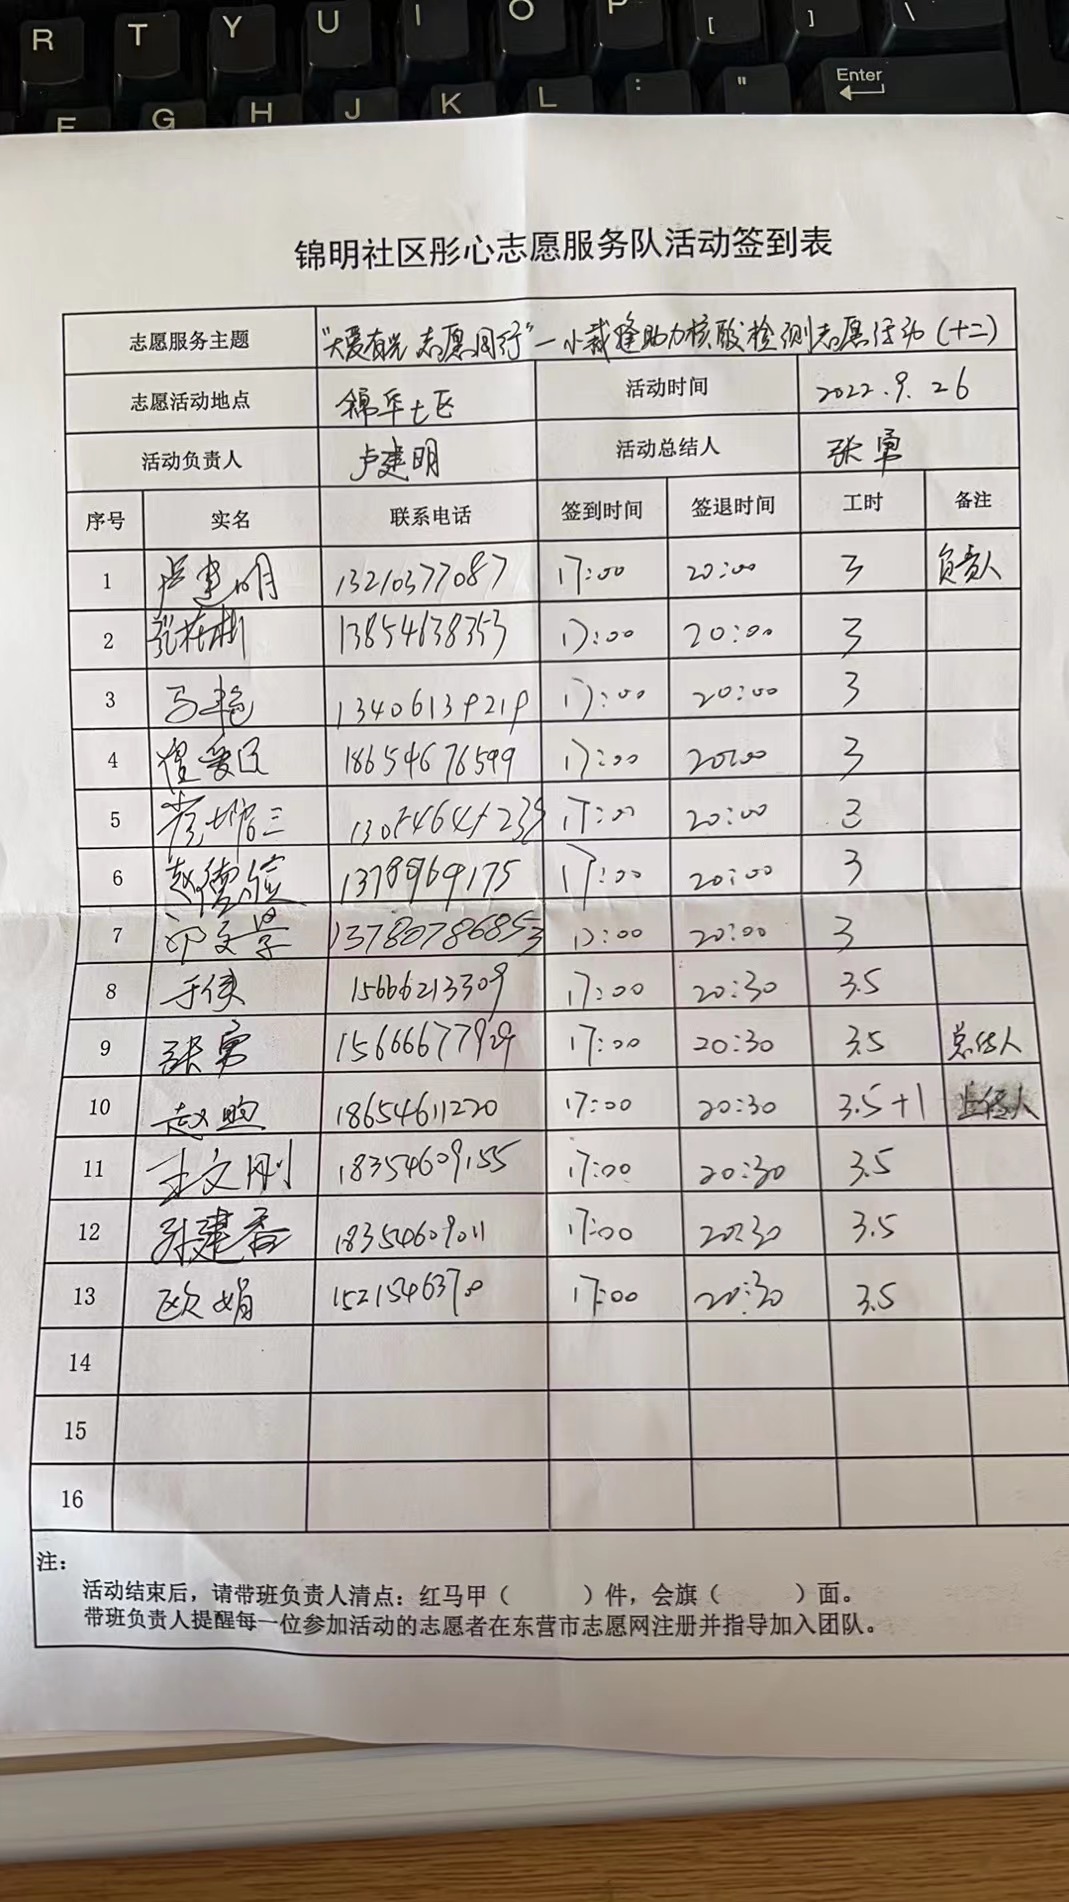 R T Y U I O P [ ] \
F G H J K L : " Enter
锦明社区彤心志愿服务队活动签到表
志愿服务主题 "大爱有光 志愿同行"一小裁缝助力核酸检测志愿活动(十二)
志愿活动地点 锦华七区 活动时间 2022.9.26
活动负责人 卢建明 活动总结人 张勇
序号 实名 联系电话 签到时间 签退时间 工时 备注
1 卢建明 13210377087 17:00 20:00 3 负责人
2 13854638353 17:00 20:00 3
3 马艳 13406139219 17:00 20:00 3
4 18654676599 17:00 20:00 3
5 17:00 20:00 3
6 赵德信 1378969175 17:00 20:00 3
7 邓文景 13780786853 17:00 20:00 3
8 于侠 15666213309 17:00 20:30 3.5
9 张勇 15666677929 17:00 20:30 3.5 总结人
10 赵煦 18654611220 17:00 20:30 3.5+1 上传人
11 王文刚 18354609155 17:00 20:30 3.5
12 孙建香 18354609011 17:00 20:30 3.5
13 欧娟 1521546378 17:00 20:30 3.5
14
15
16
注:
活动结束后，请带班负责人清点：红马甲（ ）件，会旗（ ）面。
带班负责人提醒每一位参加活动的志愿者在东营市志愿网注册并指导加入团队。